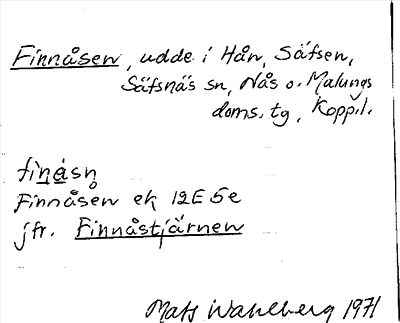 Finnåsen, udde i Hån, Säfsen,
Säfsnäs sn, Nås o. Malungs
doms. tg, Koppl.
fìnåsn̥
Finnåsen ek 12E 5e
jfr. Finnåstjärnen
Mats Wahlberg 1971